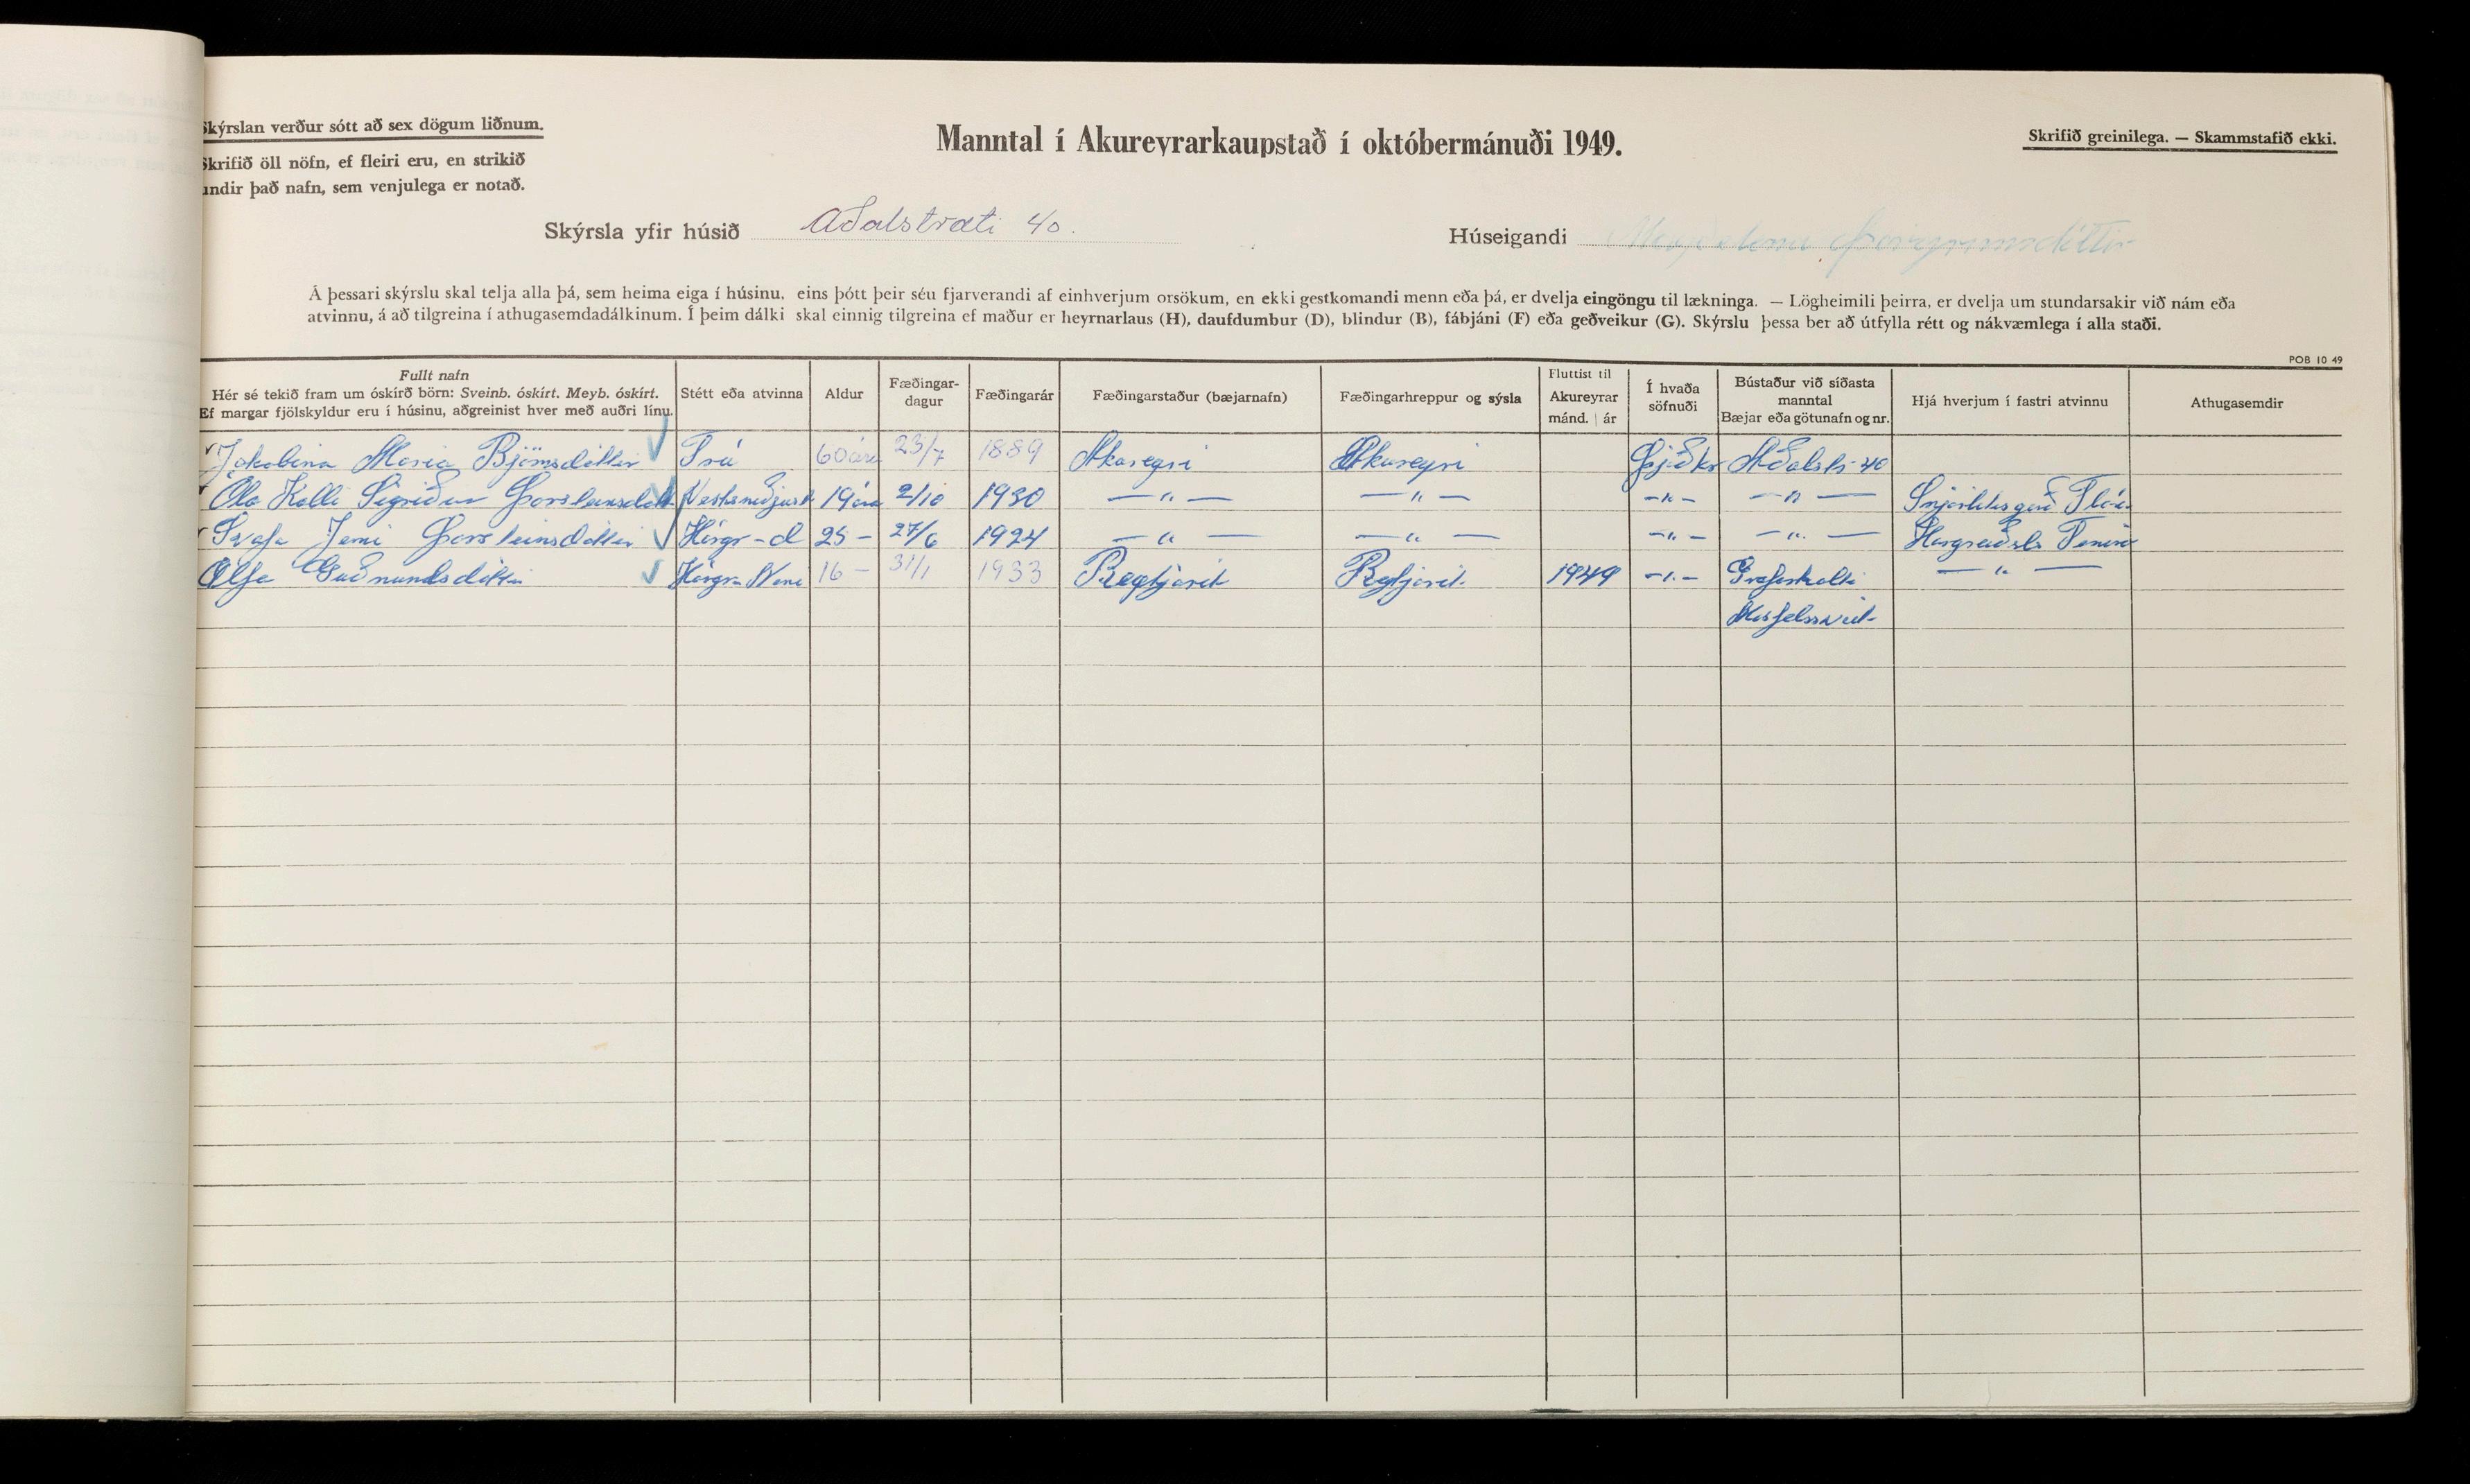 Skýrslan verður sótt að sex dögum liðnum.
Skrifið öll nöfn, ef fleiri eru, en strikið
undir það nafn, sem venjulega er notað.
Manntal í Akureyrarkaupstað í októbermánuði 1949.
Skrifið greinilega. — Skammstafið ekki.
Skýrsla yfir húsið Aðalstræti 40.
Húseigandi
Á þessari skýrslu skal telja alla þá, sem heima eiga í húsinu, eins þótt þeir séu fjarverandi af einhverjum orsökum, en ekki gestkomandi menn eða þá, er dvelja eingöngu til lækninga. — Lögheimili þeirra, er dvelja um stundarsakir við nám eða
atvinnu, á að tilgreina í athugasemdadálkinum. Í þeim dálki skal einnig tilgreina ef maður er heyrnarlaus (H), daufdumbur (D), blindur (B), fábjáni (F) eða geðveikur (G). Skýrslu þessa ber að útfylla rétt og nákvæmlega í alla staði.
POB 10 49
Fullt nafn
Hér sé tekið fram um óskírð börn: Sveinb. óskírt. Meyb. óskírt.
Ef margar fjölskyldur eru í húsinu, aðgreinist hver með auðri línu.
Stétt eða atvinna
Aldur
Fæðingar-
dagur
Fæðingarár
Fæðingarstaður (bæjarnafn)
Fæðingarhreppur og sýsla
Fluttist til
Akureyrar
mánd. | ár
Í hvaða
söfnuði
Bústaður við síðasta
manntal
Bæjar eða götunafn og nr.
Hjá hverjum í fastri atvinnu
Athugasemdir
Jakobína María Björnsdóttir Frú 60 ára 23/7 1889 Akureyri Akureyri Þjóðk Aðalstr. 40
Óla Kallí Sigríður Þorsteinsdótt 19 ára 2/10 1930 — " — — " — — " — — " —
Svafa Þorsteinsdóttir Hárgr-d 25 — 27/6 1924 — " — — " — — " — — " — Hárgreiðslu
Guðmundsdóttir Hárgr. Nemi 16 — 31/1 1933 Reykjavík Reykjavík 1949 — " — Grafarholti — " —
Mosfellssveit